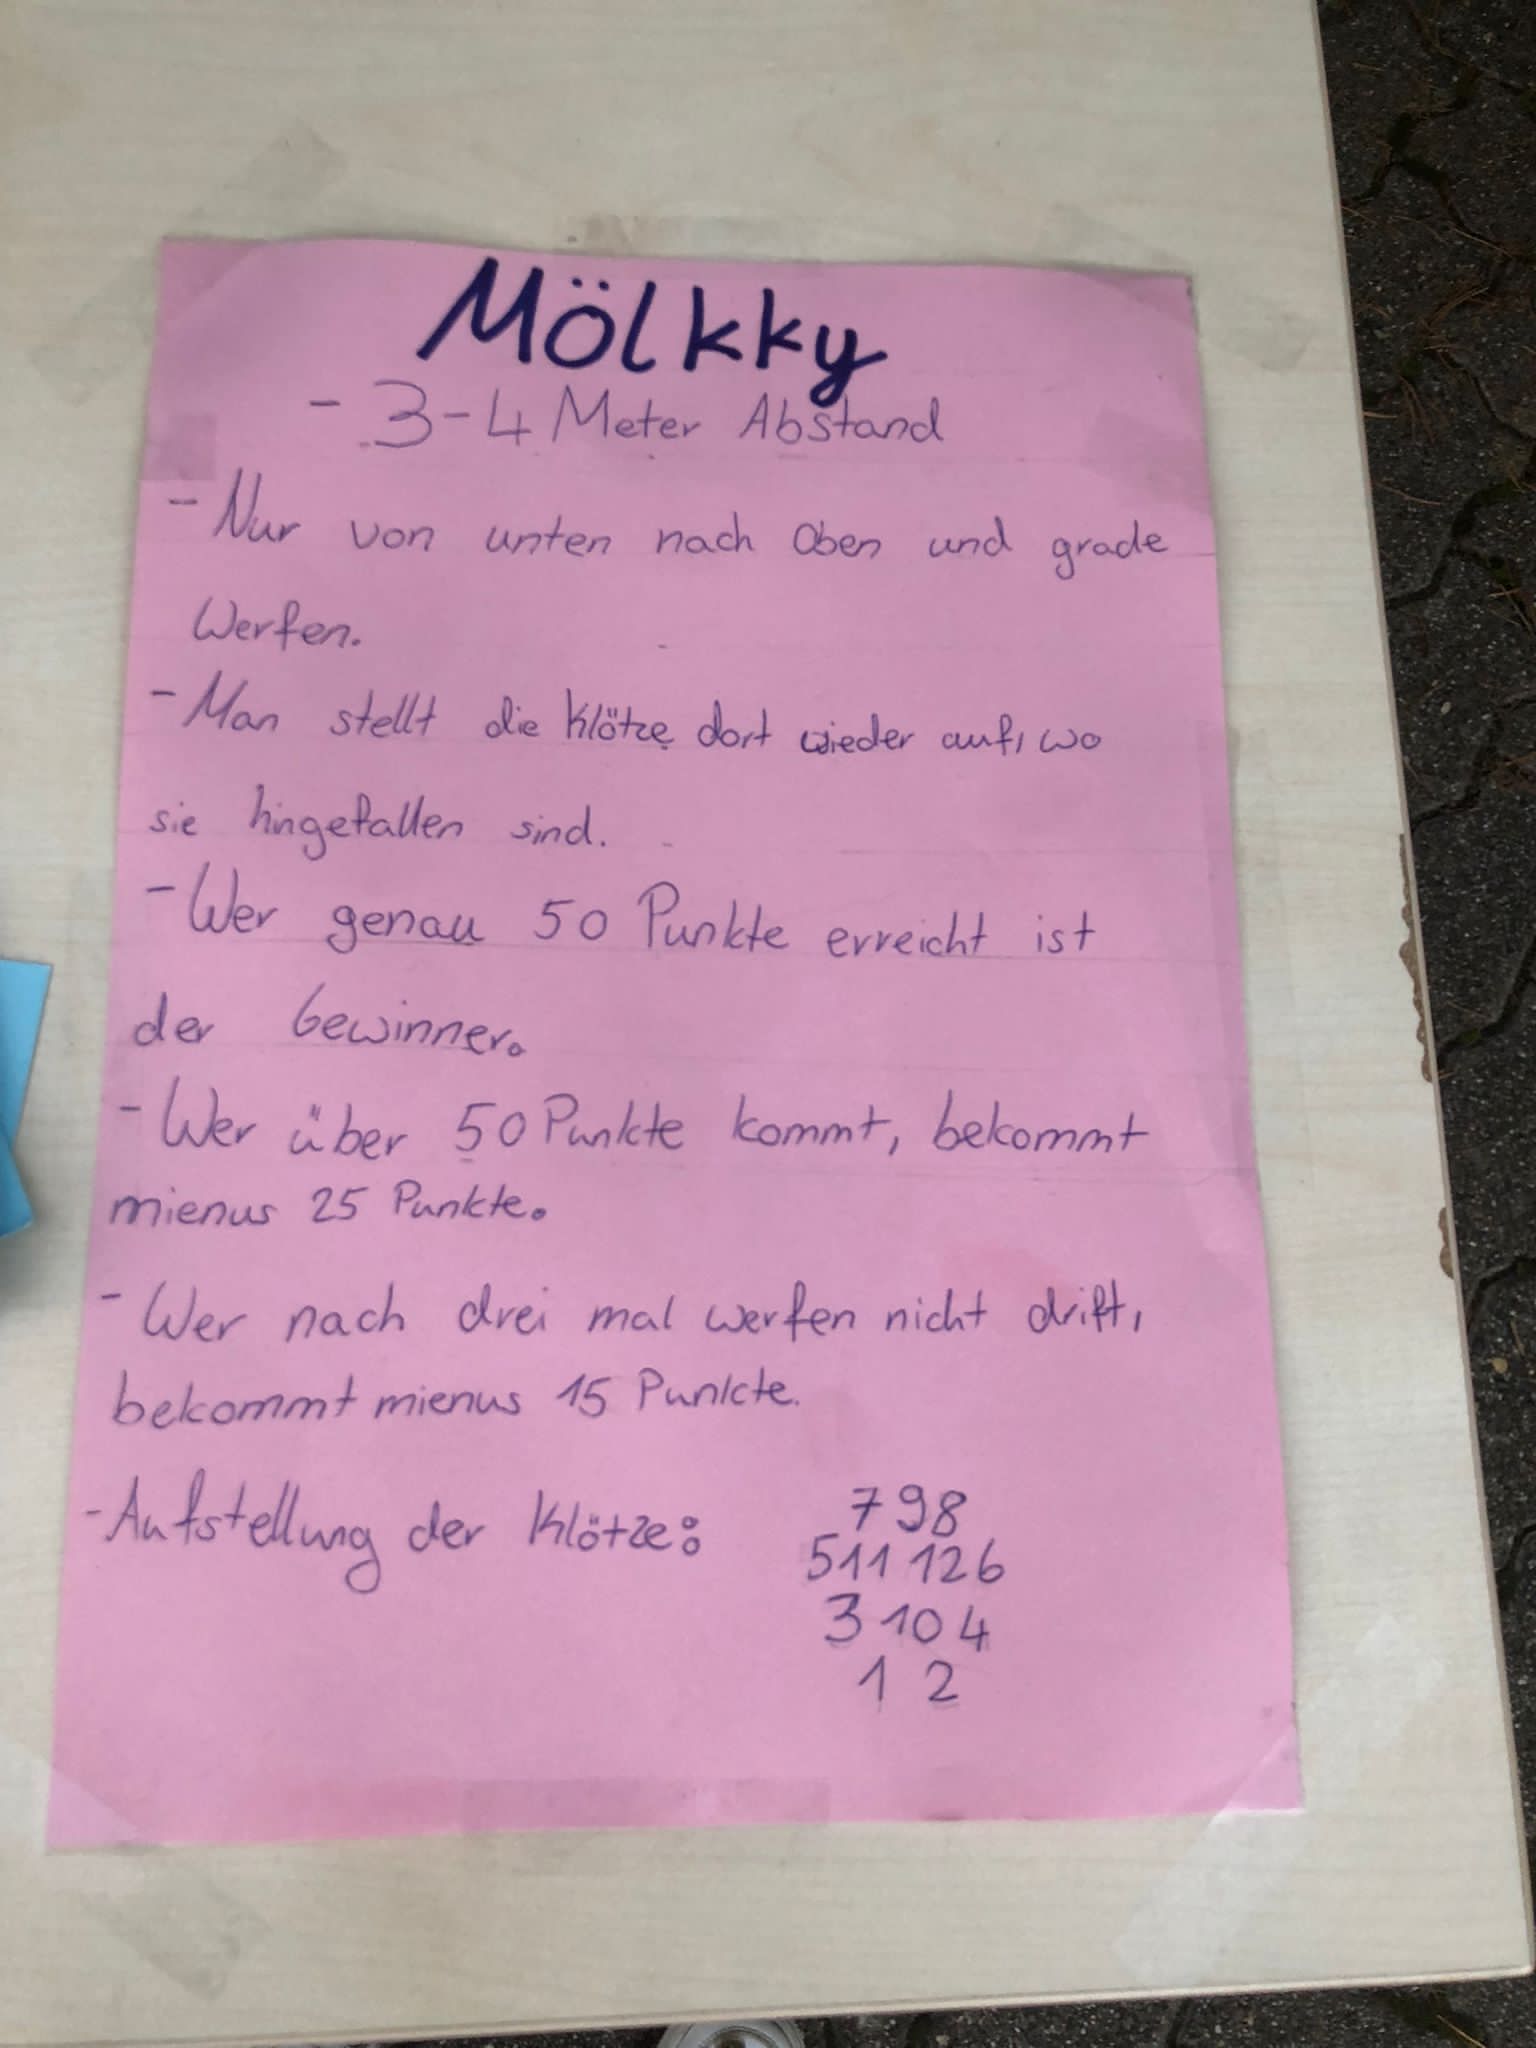 Mölkky
- 3-4 Meter Abstand
- Nur von unten nach Oben und grade
Werfen.
- Man stellt die Klötze dort wieder auf, wo
sie hingefallen sind.
- Wer genau 50 Punkte erreicht ist
der Gewinner.
- Wer über 50 Punkte kommt, bekommt
mienus 25 Punkte.
- Wer nach drei mal werfen nicht drift,
bekommt mienus 15 Punkte.
- Aufstellung der Klötze: 7 9 8
5 11 12 6
3 10 4
1 2